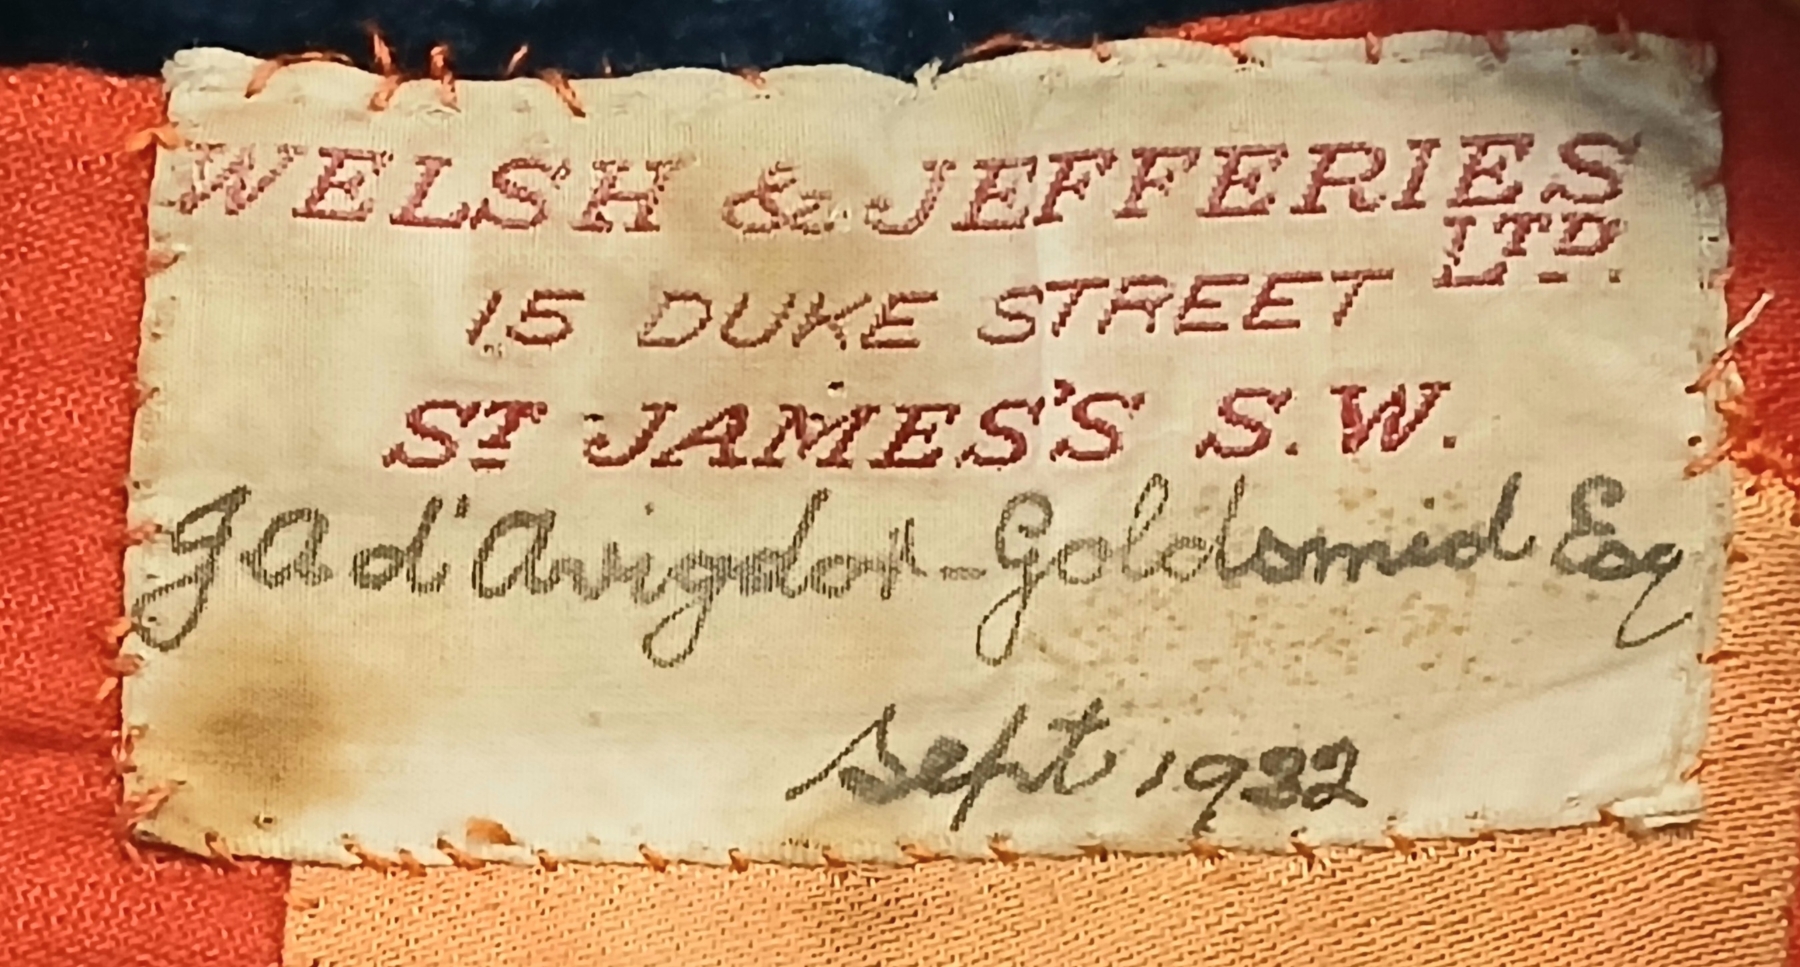 WELSH & JEFFERIES LTD.
15 DUKE STREET
ST JAMES'S S.W.
J A d'Avigdor-Goldsmid Esq
Sept 1932